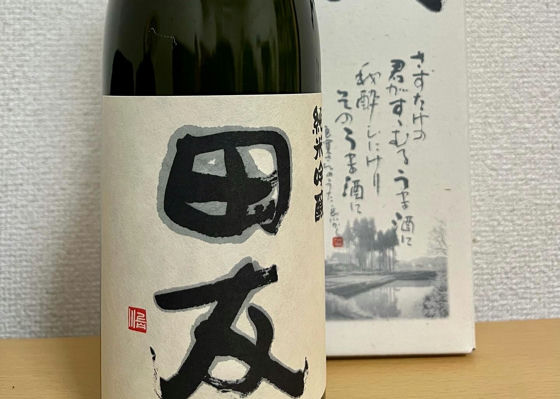 純米吟醸
田友
さすたけの
君がすゝむるうま酒に
我酔ひにけり
そのうま酒に